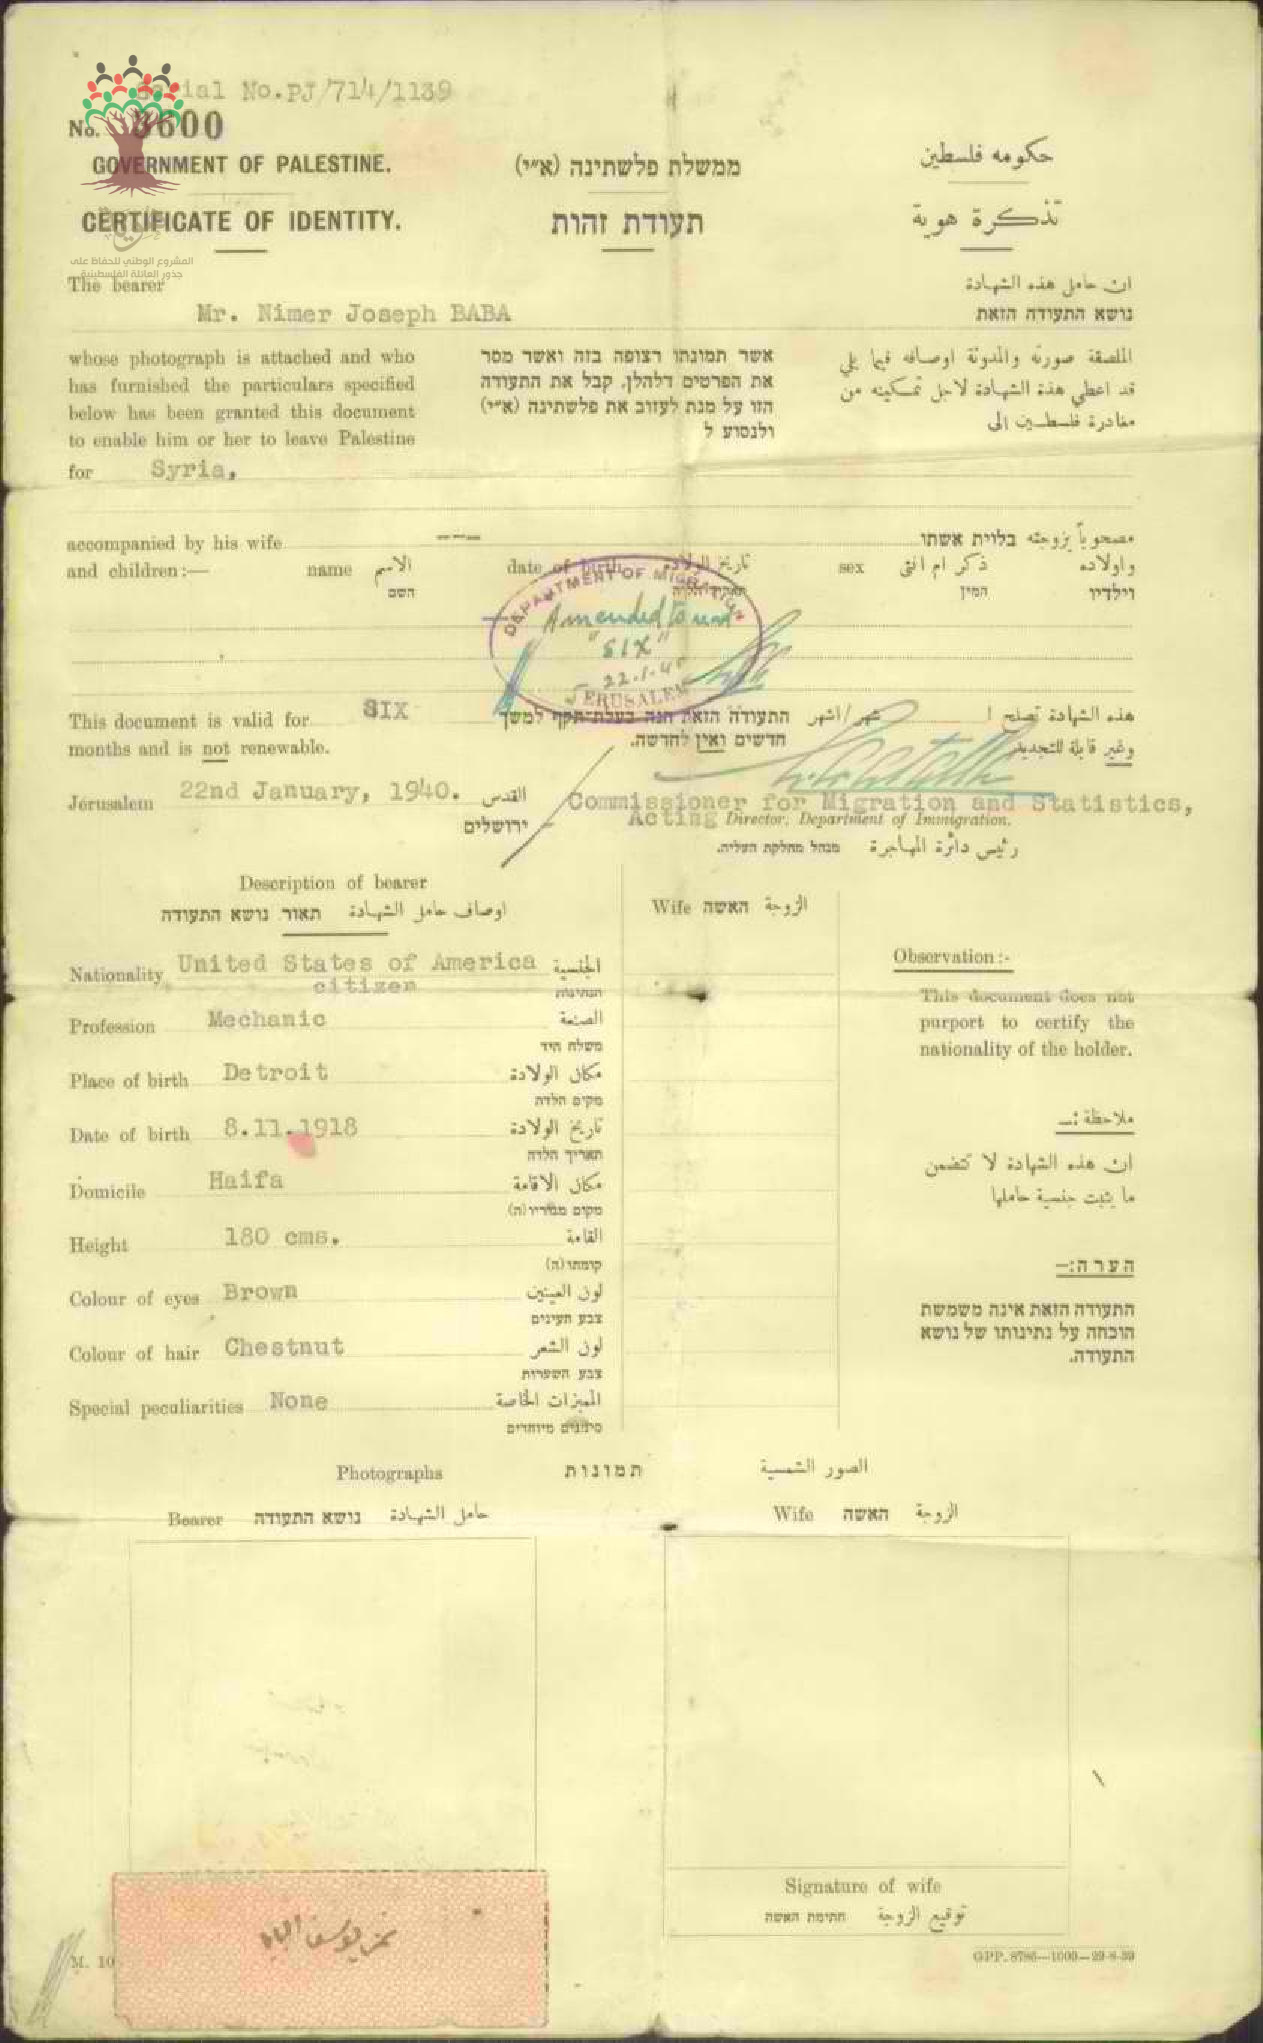 Serial No.PJ/714/1139
No. 3600
GOVERNMENT OF PALESTINE. ממשלת פלשתינה (א״י) حكومه فلسطين
CERTIFICATE OF IDENTITY. תעודת זהות تذكرة هوية
المشروع الوطني للحفاظ على
جذور العائلة الفلسطينية
The bearer ان حامل هذه الشهادة
Mr. Nimer Joseph BABA נושא התעודה הזאת
whose photograph is attached and who אשר תמונתו רצופה בזה ואשר מסר الملصقة صورته والمدونة اوصافه فيما يلي
has furnished the particulars specified את הפרטים דלהלן, קבל את התעודה قد اعطي هذه الشهادة لاجل تمكينه من
below has been granted this document הזו על מנת לעזוב את פלשתינה (א״י) مغادرة فلسطين الى
to enable him or her to leave Palestine ולנסוע ל
for Syria,
accompanied by his wife --- בלוית אשתו مصحوباً بزوجته
and children:— name الاسم date of birth تاريخ الولادة sex ذكر ام انثى واولاده
השם תאריך הלידה המין וילדיו
DEPARTMENT OF MIGRATION
Amended to read
"SIX"
22.1.40
JERUSALEM
This document is valid for SIX התעודה הזאת הנה בעלת־תקף למשך شهر/اشهر هذه الشهادة تصلح ل
months and is not renewable. חדשים ואין לחדשה. وغير قابلة للتجديد
Jerusalem 22nd January, 1940. القدس Commissioner for Migration and Statistics,
ירושלים Acting Director, Department of Immigration.
מנהל מחלקת העליה. رئيس دائرة المهاجرة
Description of bearer
תאור נושא התעודה اوصاف حامل الشهادة Wife האשה الزوجة
Nationality United States of America الجنسية
citizen הנתינות
Profession Mechanic الصنعة
משלח היד
Place of birth Detroit مكان الولادة
מקום הלדה
Date of birth 8.11.1918 تاريخ الولادة
תאריך הלדה
Domicile Haifa مكان الاقامة
מקום מגוריו(ה)
Height 180 cms. القامة
קומתו(ה)
Colour of eyes Brown لون العينين
צבע העינים
Colour of hair Chestnut لون الشعر
צבע השערות
Special peculiarities None المميزات الخاصة
סימנים מיוחדים
Observation:-
This document does not
purport to certify the
nationality of the holder.
ملاحظة :ـ
ان هذه الشهادة لا تتضمن
ما يثبت جنسية حاملها
הערה:—
התעודה הזאת אינה משמשת
הוכחה על נתינותו של נושא
התעודה.
Photographs תמונות الصور الشمسية
Bearer נושא התעודה حامل الشهادة Wife האשה الزوجة
Signature of wife
חתימת האשה توقيع الزوجة
نمر يوسف البابا
M. 10
GPP. 8786—1000—29-8-39